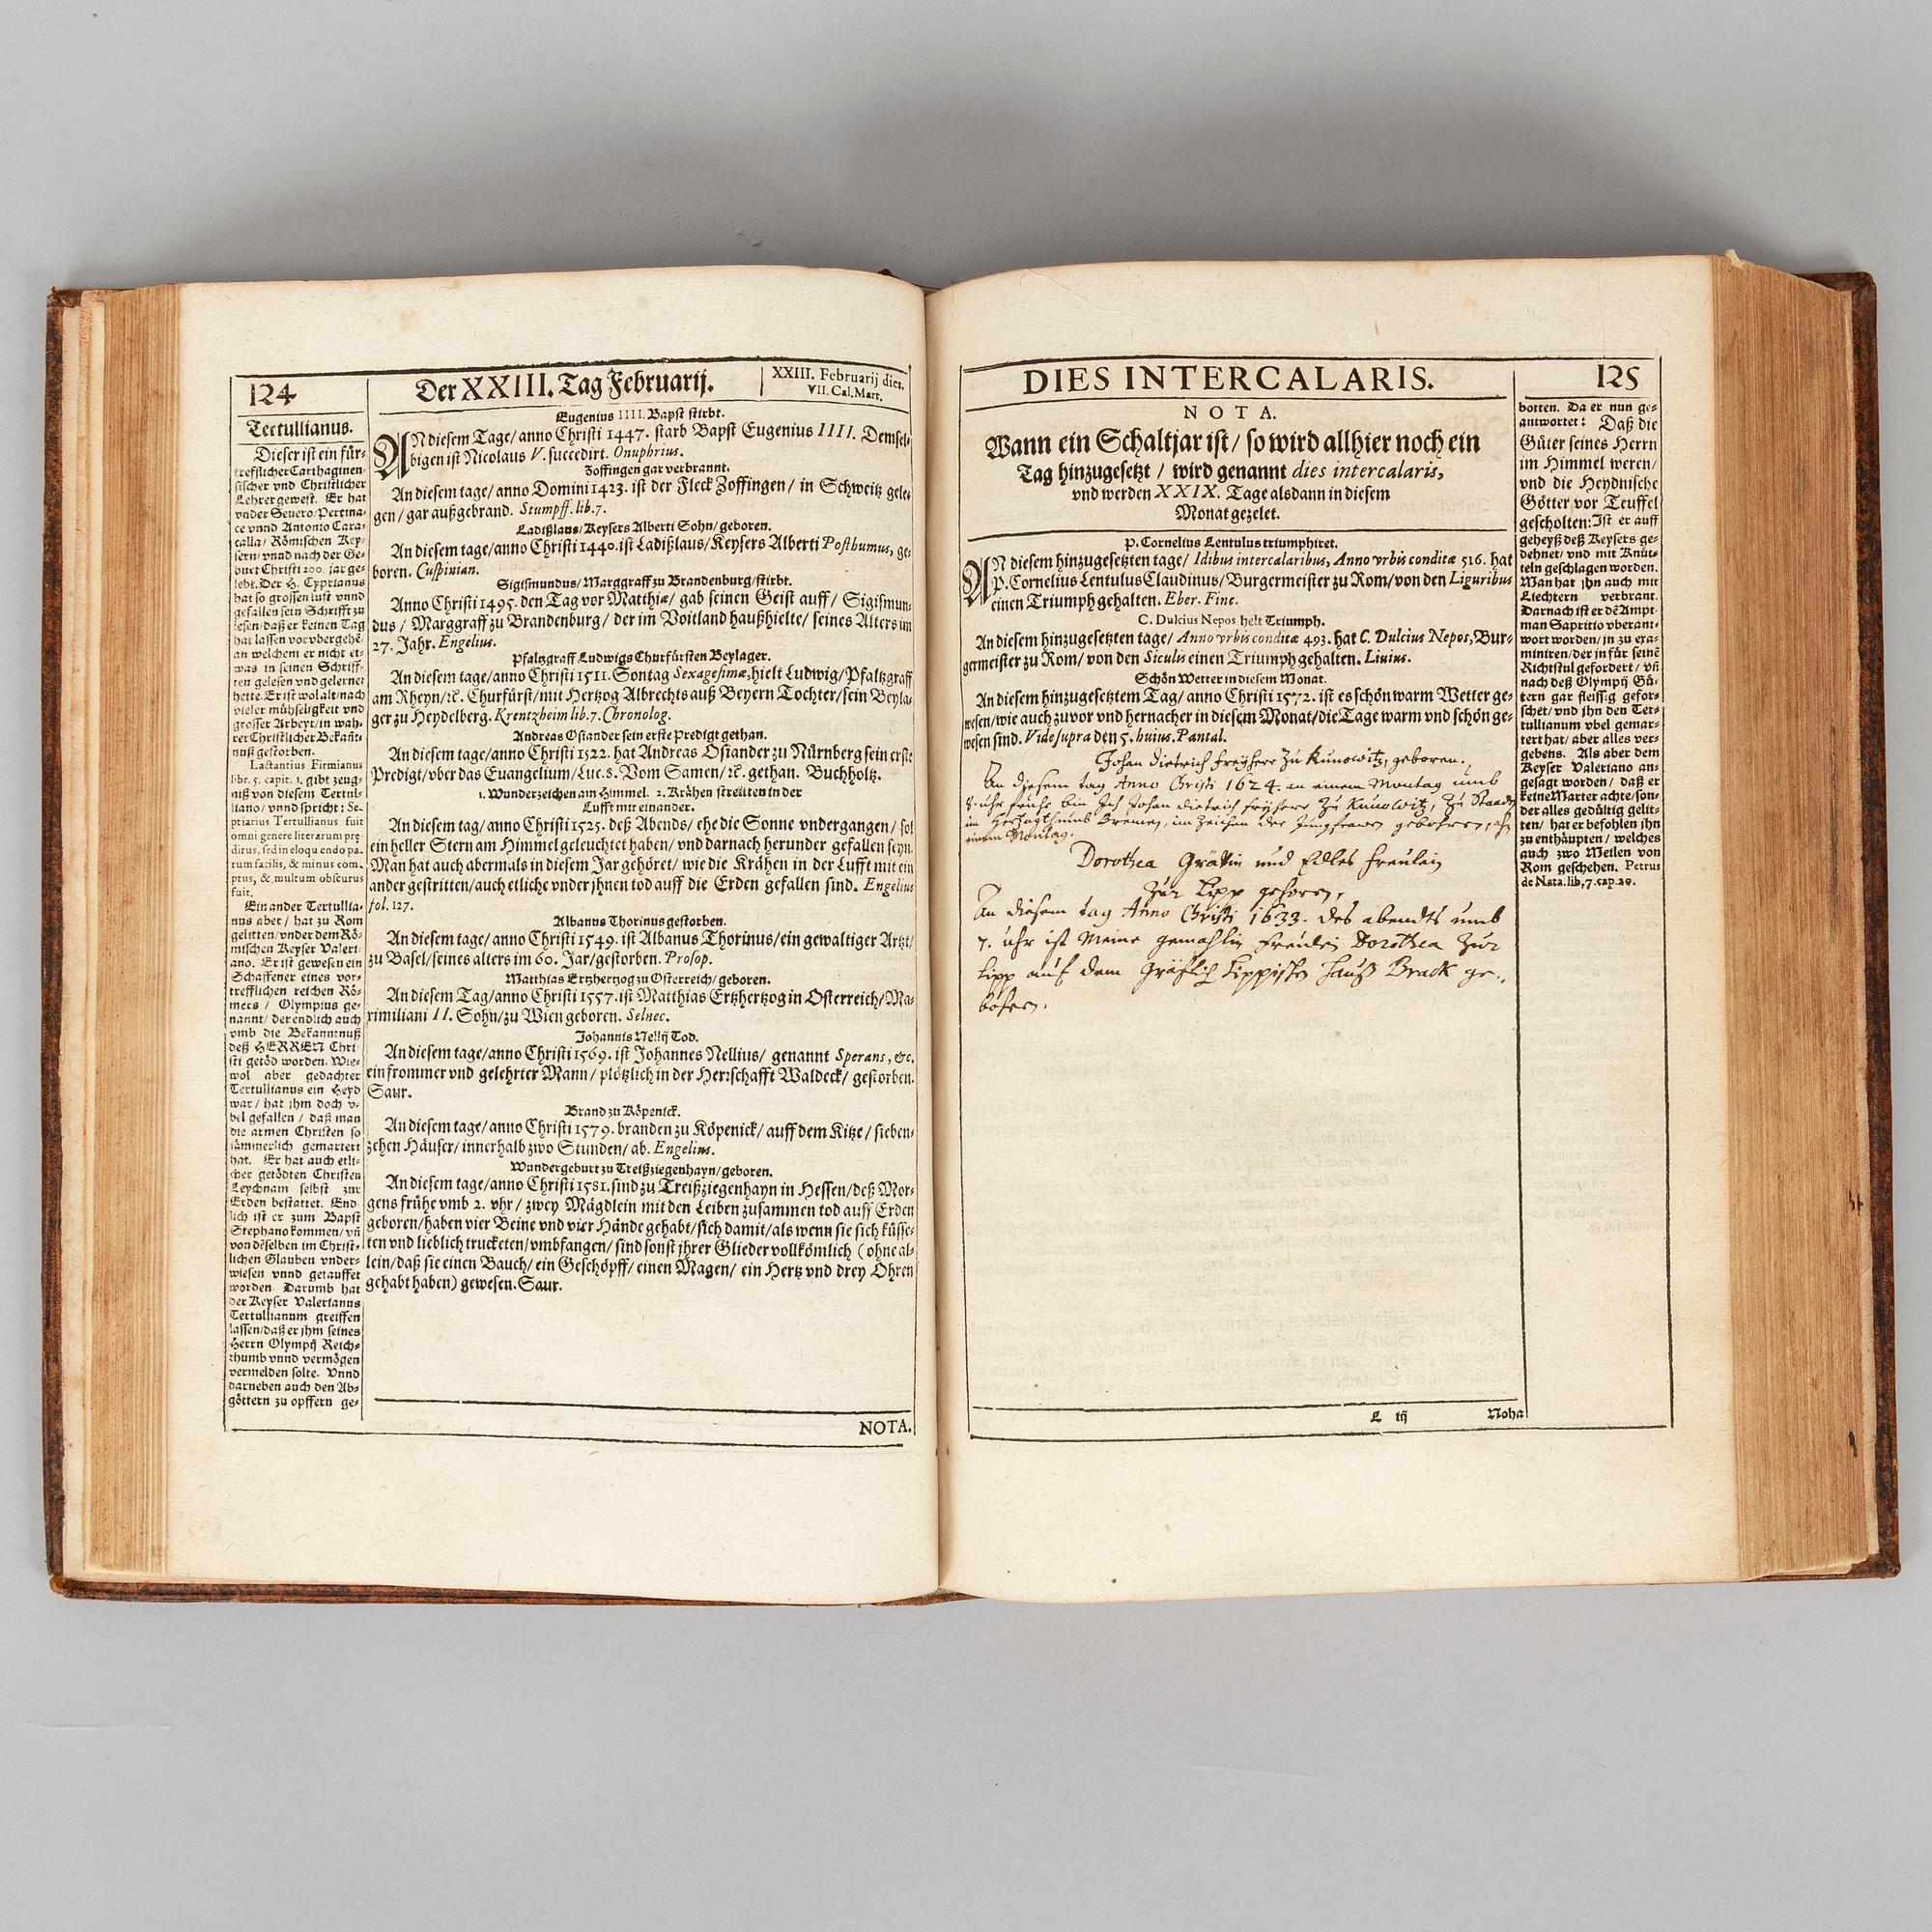 124
Der XXIII. Tag Februarij.
XXIII. Februarij dies.
VII. Cal. Mart.
Tertullianus.
Dieser ist ein für-
trefflicher Carthaginen-
sischer vnd Christlicher
Lehrer gewest. Er hat
vnder Seuero/Pertina-
ce vnnd Antonio Cara-
calla/ Römischen Key-
sern/vnnd nach der Ge-
burt Christi 200. jar ge-
lebt. Der H. Cyprianus
hat so grossen lust vnnd
gefallen sein Schrifft zu
lesen/daß er keinen Tag
hat lassen vorvbergehē/
an welchem er nicht et-
was in seinen Schriff-
ten gelesen vnd gelernet
hette. Er ist wol alt/nach
vieler mühseligkeit vnd
grosser Arbeyt/in wah-
rer Christlicher Bekañt-
nuß gestorben.
Lactantius Firmianus
libr. 5. capit. 1. gibt zeug-
niß von diesem Tertul-
liano/ vnnd spricht: Se-
ptiarius Tertullianus fuit
omni genere literarum pre
ditus, sed in eloquendo pa-
rum facilis, & minus com-
ptus, & multum obscurus
fuit.
Ein ander Tertullia-
nus aber/ hat zu Rom
gelitten/vnder dem Rö-
mischen Keyser Valeri-
ano. Er ist gewesen ein
Schaffener eines vor-
trefflichen reichen Rö-
mers/ Olympius ge-
nannt/der endlich auch
vmb die Bekanntnuß
deß HERREN Chri-
sti getöd worden. Wie-
wol aber gedachter
Tertullianus ein Heyd
war/ hat jhm doch v-
bel gefallen/ daß man
die armen Christen so
jämmerlich gemartert
hat. Er hat auch etli-
cher getödten Christen
Leychnam selbst zur
Erden bestattet. End-
lich ist er zum Bapst
Stephano kommen/ vñ
von dēselben im Christ-
lichen Glauben vnder-
wiesen vnnd getauffet
worden. Darumb hat
der Keyser Valerianus
Tertullianum greiffen
lassen/daß er jhm seines
Herrn Olympij Reich-
thumb vnnd vermögen
vermelden solte. Vnnd
darneben auch den Ab-
göttern zu opffern ge-
Eugenius IIII. Bapst stirbt.
AN diesem Tage/ anno Christi 1447. starb Bapst Eugenius IIII. Demsel-
bigen ist Nicolaus V. succedirt. Onuphrius.
Zoffingen gar verbrannt.
An diesem tage/ anno Domini 1423. ist der Fleck Zoffingen/ in Schweitz gele-
gen/ gar außgebrand. Stumpff. lib. 7.
Ladißlaus/Keysers Alberti Sohn/geboren.
An diesem tage/anno Christi 1440. ist Ladißlaus/Keysers Alberti Posthumus, ge-
boren. Cuspinian.
Sigismundus/Marggraff zu Brandenburg/stirbt.
Anno Christi 1495. den Tag vor Matthiæ/ gab seinen Geist auff/ Sigismun-
dus/ Marggraff zu Brandenburg/ der im Voitland haußhielte/ seines Alters im
27. Jahr. Engelius.
Pfaltzgraff Ludwigs Churfürsten Beylager.
An diesem tage/anno Christi 1511. Sontag Sexagesimæ, hielt Ludwig/Pfaltzgraff
am Rheyn/ꝛc. Churfürst/mit Hertzog Albrechts auß Beyern Tochter/sein Beyla-
ger zu Heydelberg. Krentzheim lib. 7. Chronolog.
Andreas Osiander sein erste Predigt gethan.
An diesem tage/anno Christi 1522. hat Andreas Osiander zu Nürnberg sein erste
Predigt/vber das Euangelium/Luc. 8. Vom Samen/ꝛc. gethan. Buchholtz.
1. Wunderzeichen am Himmel. 2. Krähen streitten in der
Lufft mit einander.
An diesem tag/ anno Christi 1525. deß Abends/ ehe die Sonne vndergangen/ sol
ein heller Stern am Himmel geleuchtet haben/ vnd darnach herunder gefallen seyn.
Man hat auch abermals in diesem Jar gehöret/ wie die Krähen in der Lufft mit ein
ander gestritten/auch etliche vnder jhnen tod auff die Erden gefallen sind. Engelius
fol. 127.
Albanus Thorinus gestorben.
An diesem tage/ anno Christi 1549. ist Albanus Thorinus/ein gewaltiger Artzt/
zu Basel/seines alters im 60. Jar/gestorben. Prosop.
Matthias Ertzhertzog zu Osterreich/geboren.
An diesem Tag/anno Christi 1557. ist Matthias Ertzhertzog in Osterreich/Ma-
ximiliani II. Sohn/zu Wien geboren. Selnec.
Johannis Nellij Tod.
An diesem tage/anno Christi 1569. ist Johannes Nellius/ genannt Sperans, &c.
ein frommer vnd gelehrter Mann/ plötzlich in der Herrschafft Waldeck/ gestorben.
Saur.
Brand zu Köpenick.
An diesem tage/ anno Christi 1579. branden zu Köpenick/ auff dem Kitze/ sieben-
zehen Häuser/ innerhalb zwo Stunden/ ab. Engelius.
Wundergeburt zu Treißziegenhayn/geboren.
An diesem tage/anno Christi 1581. sind zu Treißziegenhayn in Hessen/deß Mor-
gens frühe vmb 2. vhr/ zwey Mägdlein mit den Leiben zusammen tod auff Erden
geboren/haben vier Beine vnd vier Hände gehabt/sich damit/als wenn sie sich küsse-
ten vnd lieblich trucketen/vmbfangen/ sind sonst jhrer Glieder vollkömlich (ohne al-
lein/daß sie einen Bauch/ ein Geschöpff/ einen Magen/ ein Hertz vnd drey Ohren
gehabt haben) gewesen. Saur.
NOTA.
DIES INTERCALARIS.
125
NOTA.
Wann ein Schaltjar ist/ so wird allhier noch ein
Tag hinzugesetzt/ wird genannt dies intercalaris,
vnd werden XXIX. Tage alsdann in diesem
Monat gezelet.
P. Cornelius Lentulus triumphiret.
AN diesem hinzugesetzten tage/ Idibus intercalaribus, Anno vrbis conditæ 516. hat
P. Cornelius Lentulus Claudinus/ Burgermeister zu Rom/von den Liguribus
einen Triumph gehalten. Eber. Finc.
C. Dulcius Nepos helt Triumph.
An diesem hinzugesetzten tage/ Anno vrbis conditæ 493. hat C. Dulcius Nepos, Bur-
germeister zu Rom/ von den Siculis einen Triumph gehalten. Liuius.
Schön Wetter in diesem Monat.
An diesem hinzugesetztem Tag/ anno Christi 1572. ist es schön warm Wetter ge-
wesen/wie auch zuvor vnd hernacher in diesem Monat/die Tage warm vnd schön ge-
wesen sind. Vide supra den 5. huius. Pantal.
Johan Dietrich Freyherr Zu Kunowitz, geboren.
An diesem tag Anno Christi 1624. an einem Montag umb
8. uhr fruhe bin Ich Johan Dietrich freyherr Zu Kunowitz, Zu Staade
im Hertzogthumb Bremen, im Zeichen der Jungfrawen gebohren,
einem Montag.
Dorothea Gräfin und Edles freulein
Zur Lipp geboren,
An diesem tag Anno Christi 1633. des abendts umb
7. uhr ist Meine gemahlin freulein Dorothea Zur
Lipp auf dem Gräflich Lippischen Hauß Brack ge-
bohren.
L iij
Noha
botten. Da er nun ge-
antwortet: Daß die
Güter seines Herrn
im Himmel weren/
vnd die Heydnische
Götter vor Teuffel
gescholten: Ist er auff
geheyß deß Keysers ge-
dehnet/ vnd mit Knüt-
teln geschlagen worden.
Man hat jhn auch mit
Liechtern verbrant.
Darnach ist er dē Ampt-
man Sapritio vberant-
wort worden/ jn zu exa-
miniren/der in für seinē
Richtstul gefordert/ vñ
nach deß Olympij Gü-
tern gar fleissig gefor-
schet/ vnd jhn den Ter-
tullianum vbel gemar-
tert hat/ aber alles ver-
gebens. Als aber dem
Keyser Valeriano an-
gesagt worden/ daß er
keine Marter achte/son-
der alles gedültig gelit-
ten/ hat er befohlen jhn
zu enthäupten/ welches
auch zwo Meilen von
Rom geschehen. Petrus
de Nata. lib. 7. cap. 20.